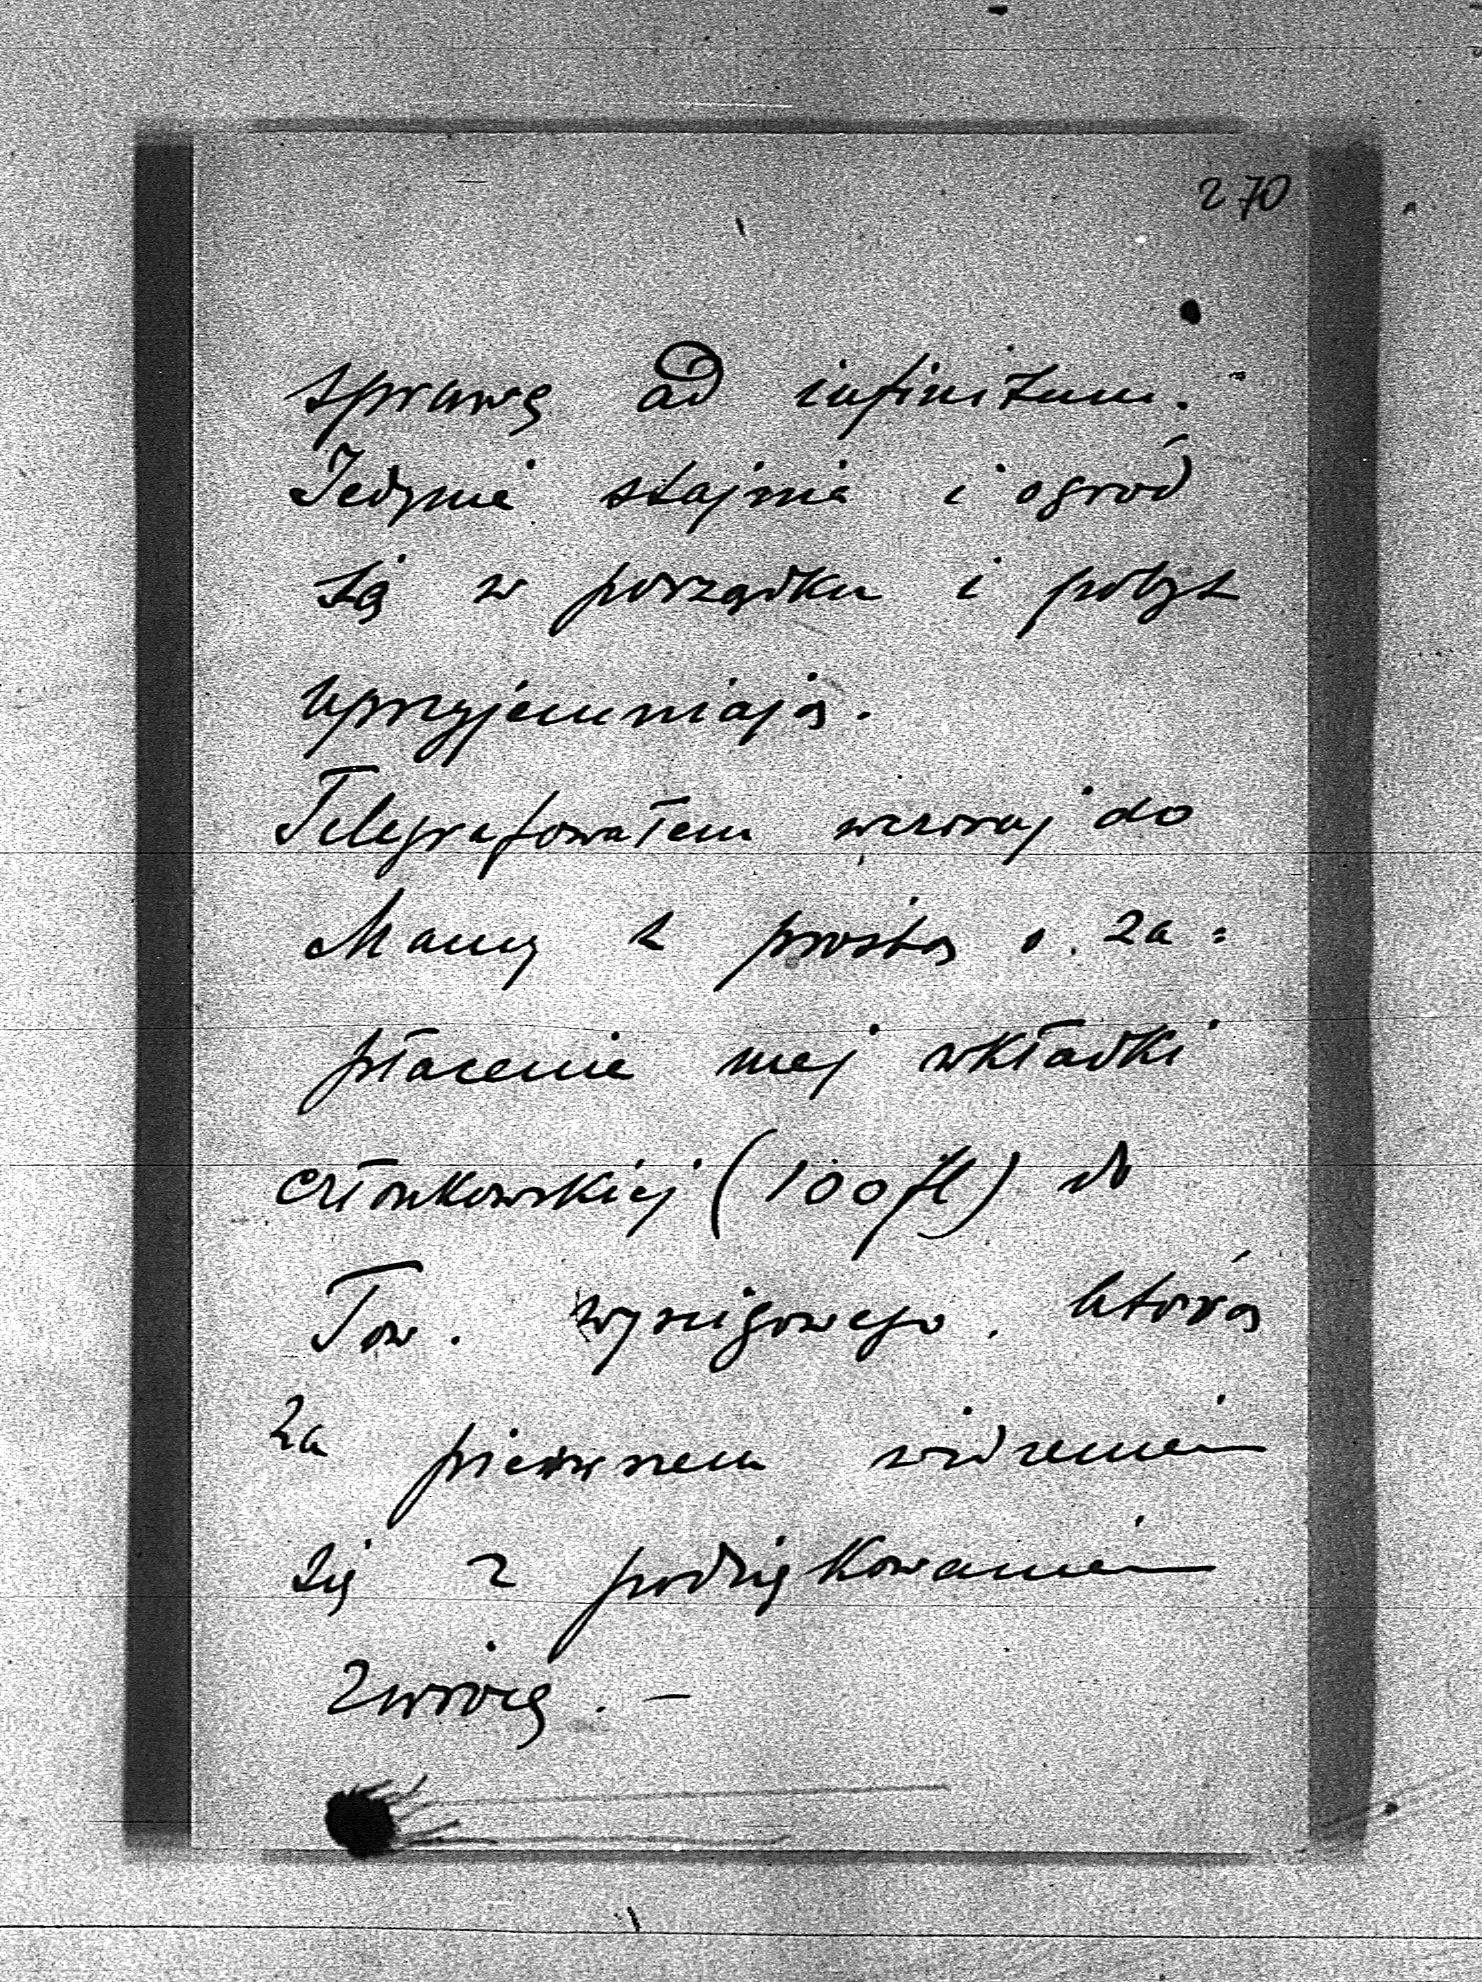 270
sprawę ad infinitum.
Jedynie stajnia i ogród
są w porządku i pobyt
uprzyjemniają.
Telegrafowałem wczoraj do
Mamy z prośbą o za=
płacenie mej wkładki
członkowskiej (100 fl) do
Tow. wyścigowego. którą
za pierwszem widzeniem
się z podziękowaniem
zwrócę. —